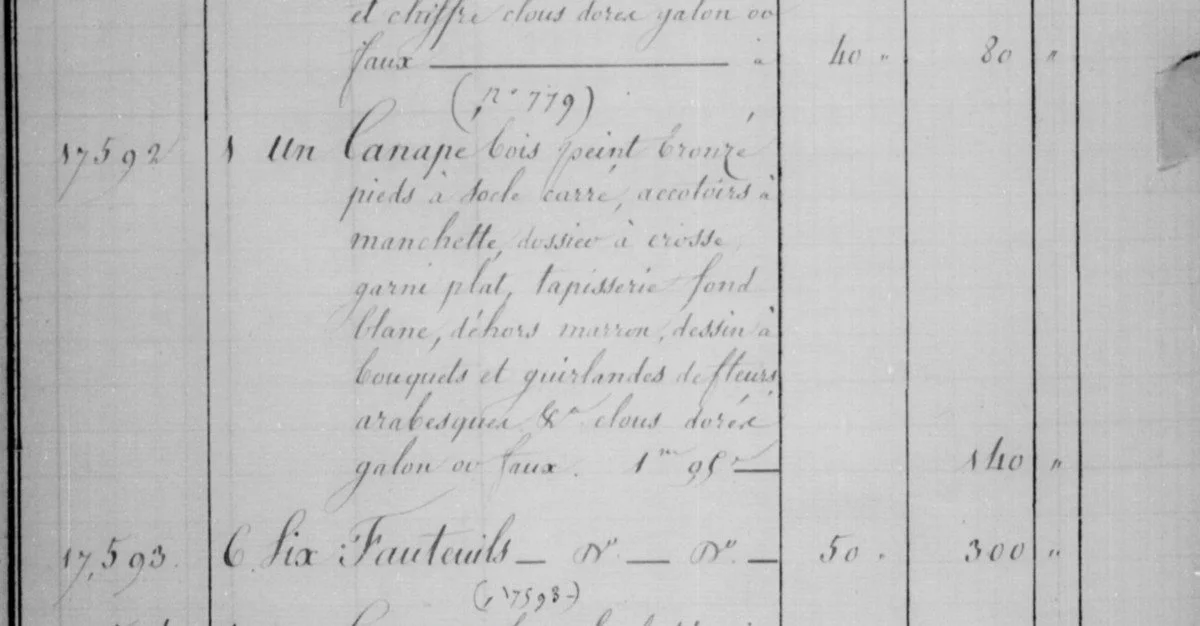 et chiffre clous dorés galon or
faux — à 40 " 80 "
(, n° 779)
17592 1 Un Canapé bois peint bronzé
pieds à socle carré, accotoirs à
manchette, dossier à crosse,
garni plat, tapisserie fond
blanc, déhors marron, dessin à
bouquets et guirlandes de fleurs,
arabesques &a clous dorés
galon or faux. 1m 95c — 140 "
17,593. 6. Six Fauteuils — do — do — 50 " 300 "
(, 17593-)